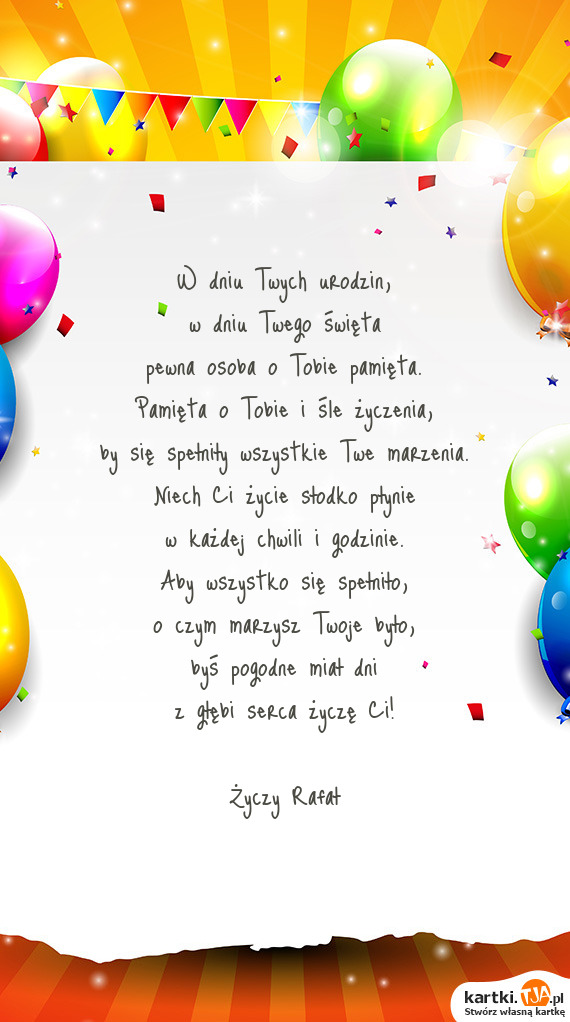 W dniu Twych urodzin,
w dniu Twego święta
pewna osoba o Tobie pamięta.
Pamięta o Tobie i śle życzenia,
by się spełniły wszystkie Twe marzenia.
Niech Ci życie słodko płynie
w każdej chwili i godzinie.
Aby wszystko się spełniło,
o czym marzysz Twoje było,
byś pogodne miał dni
z głębi serca życzę Ci!
Życzy Rafał
kartki.TJA.pl
Stwórz własną kartkę